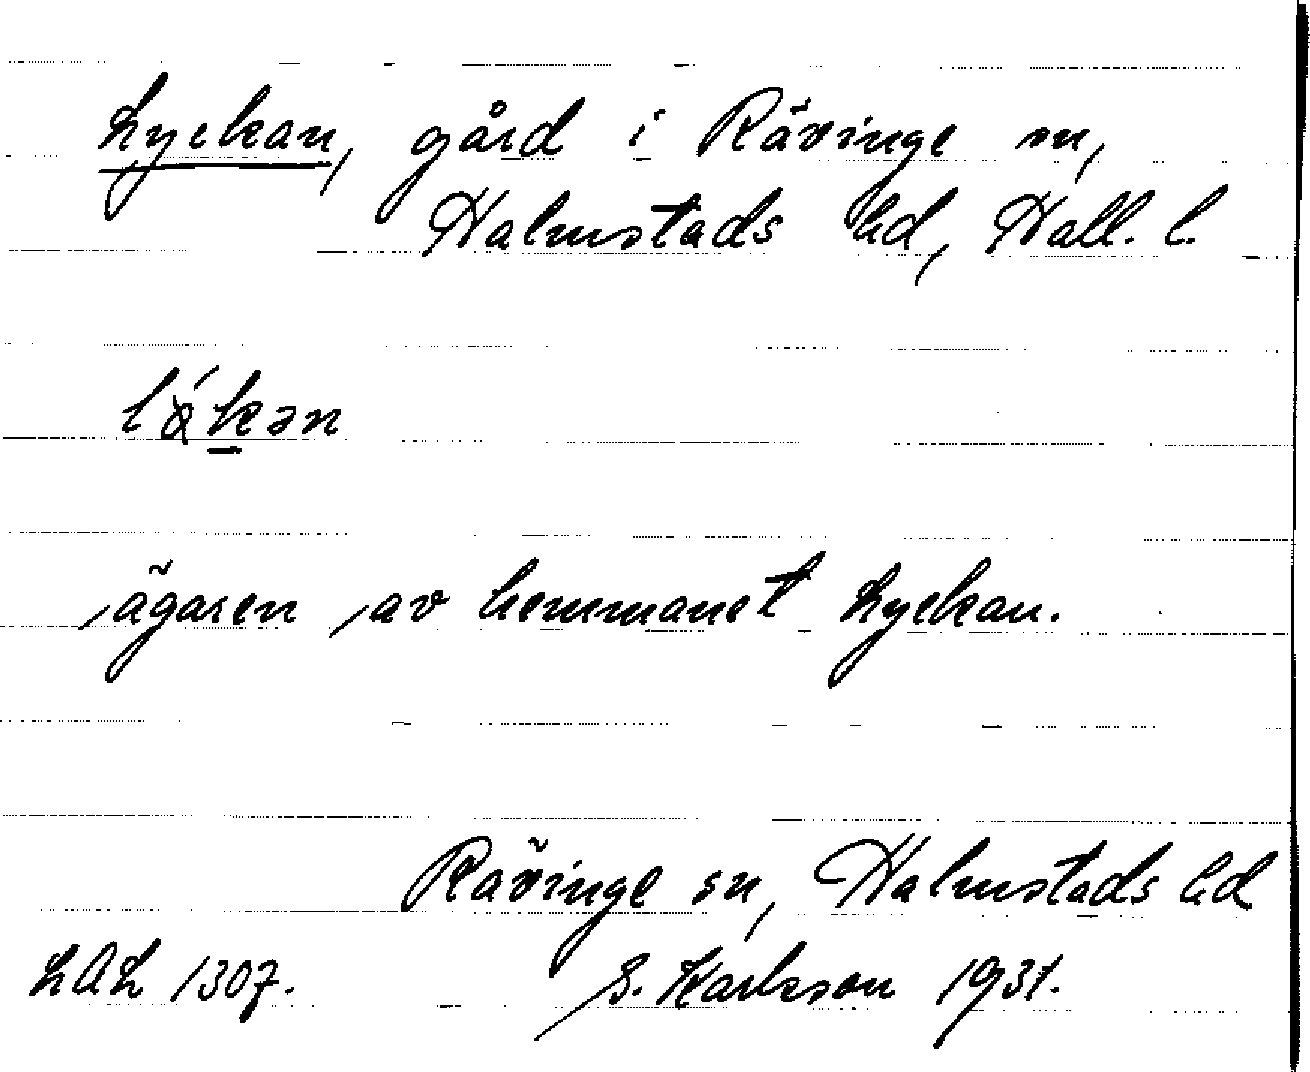 Lyckan, gård i Rävinge sn,
Halmstads hd, Hall. l.
ägaren av hemmanet Lyckan.
Rävinge sn, Halmstads hd
LAL 1307. S. Karlsson 1931.